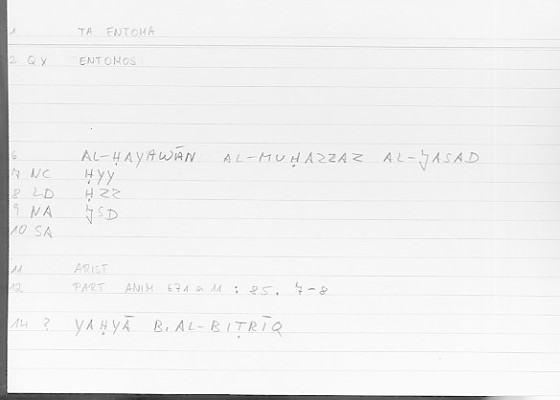 1 TA ENTOMA
2 QX ENTOMOS
6 AL-ḤAYAWĀN AL-MUḤAZZAZ AL-ǦASAD
7 NC ḤYY
8 LD ḤZZ
9 NA ǦSD
10 SA
11 ARIST
12 PART ANIM 671 a 11 : 85. 7-8
14 ? YAḤYĀ B. AL-BIṬRĪQ